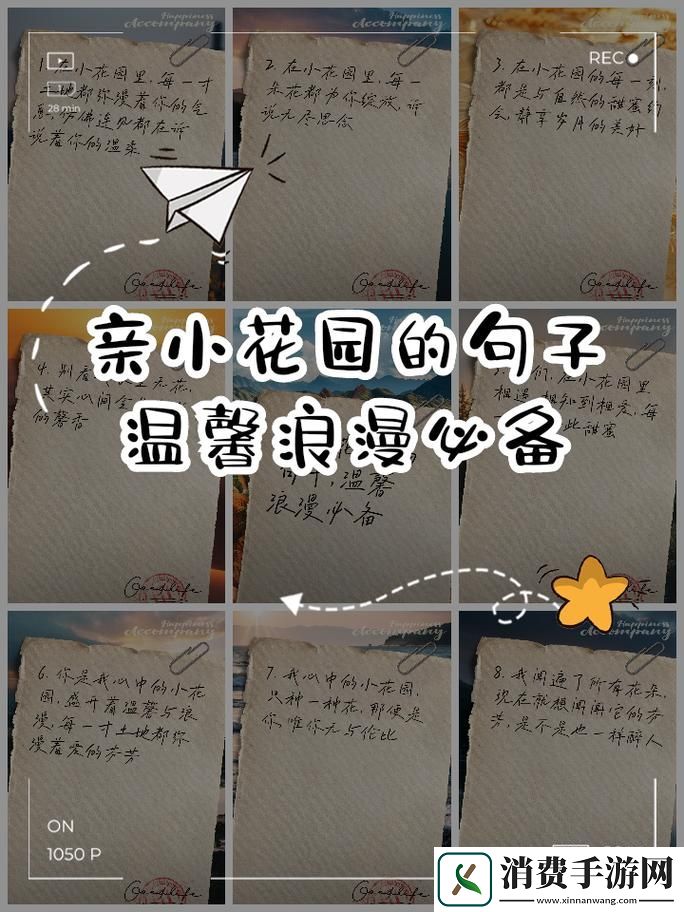 Happiness
Accompany
Happiness
Accompany
REC
28 min
1. 在小花园里,每一寸
土地都弥漫着你的气
息,仿佛连风都在诉
说着你的温柔
2. 在小花园里,每一
朵花都为你绽放,诉
说无尽思念
3. 在小花园的每一刻,
都是与自然的甜蜜约
会,静享岁月的美好
Goodlife
Goodlife
Goodlife
亲小花园的句子
温馨浪漫必备
Happiness
Accompany
4. 别看
无花,
其实心间
的馨香
温馨
浪漫必备
们,在小花园里
相遇
相知到相爱,每
此甜蜜
Goodlife
Happiness
Accompany
Happiness
Accompany
Accompany
6. 你是我心中的小花
园,盛开着温馨与浪
漫,每一寸土地都弥
漫着爱的芬芳
7. 我心中的小花园,
只种一种花,那便是
你,唯你无与伦比
8. 我闻遍了所有花朵,
现在就想闻闻它的芬
芳,是不是也一样醉人
ON
1050 P
Goodlife
Goodlife
消费手游网
www.xinnanwang.com